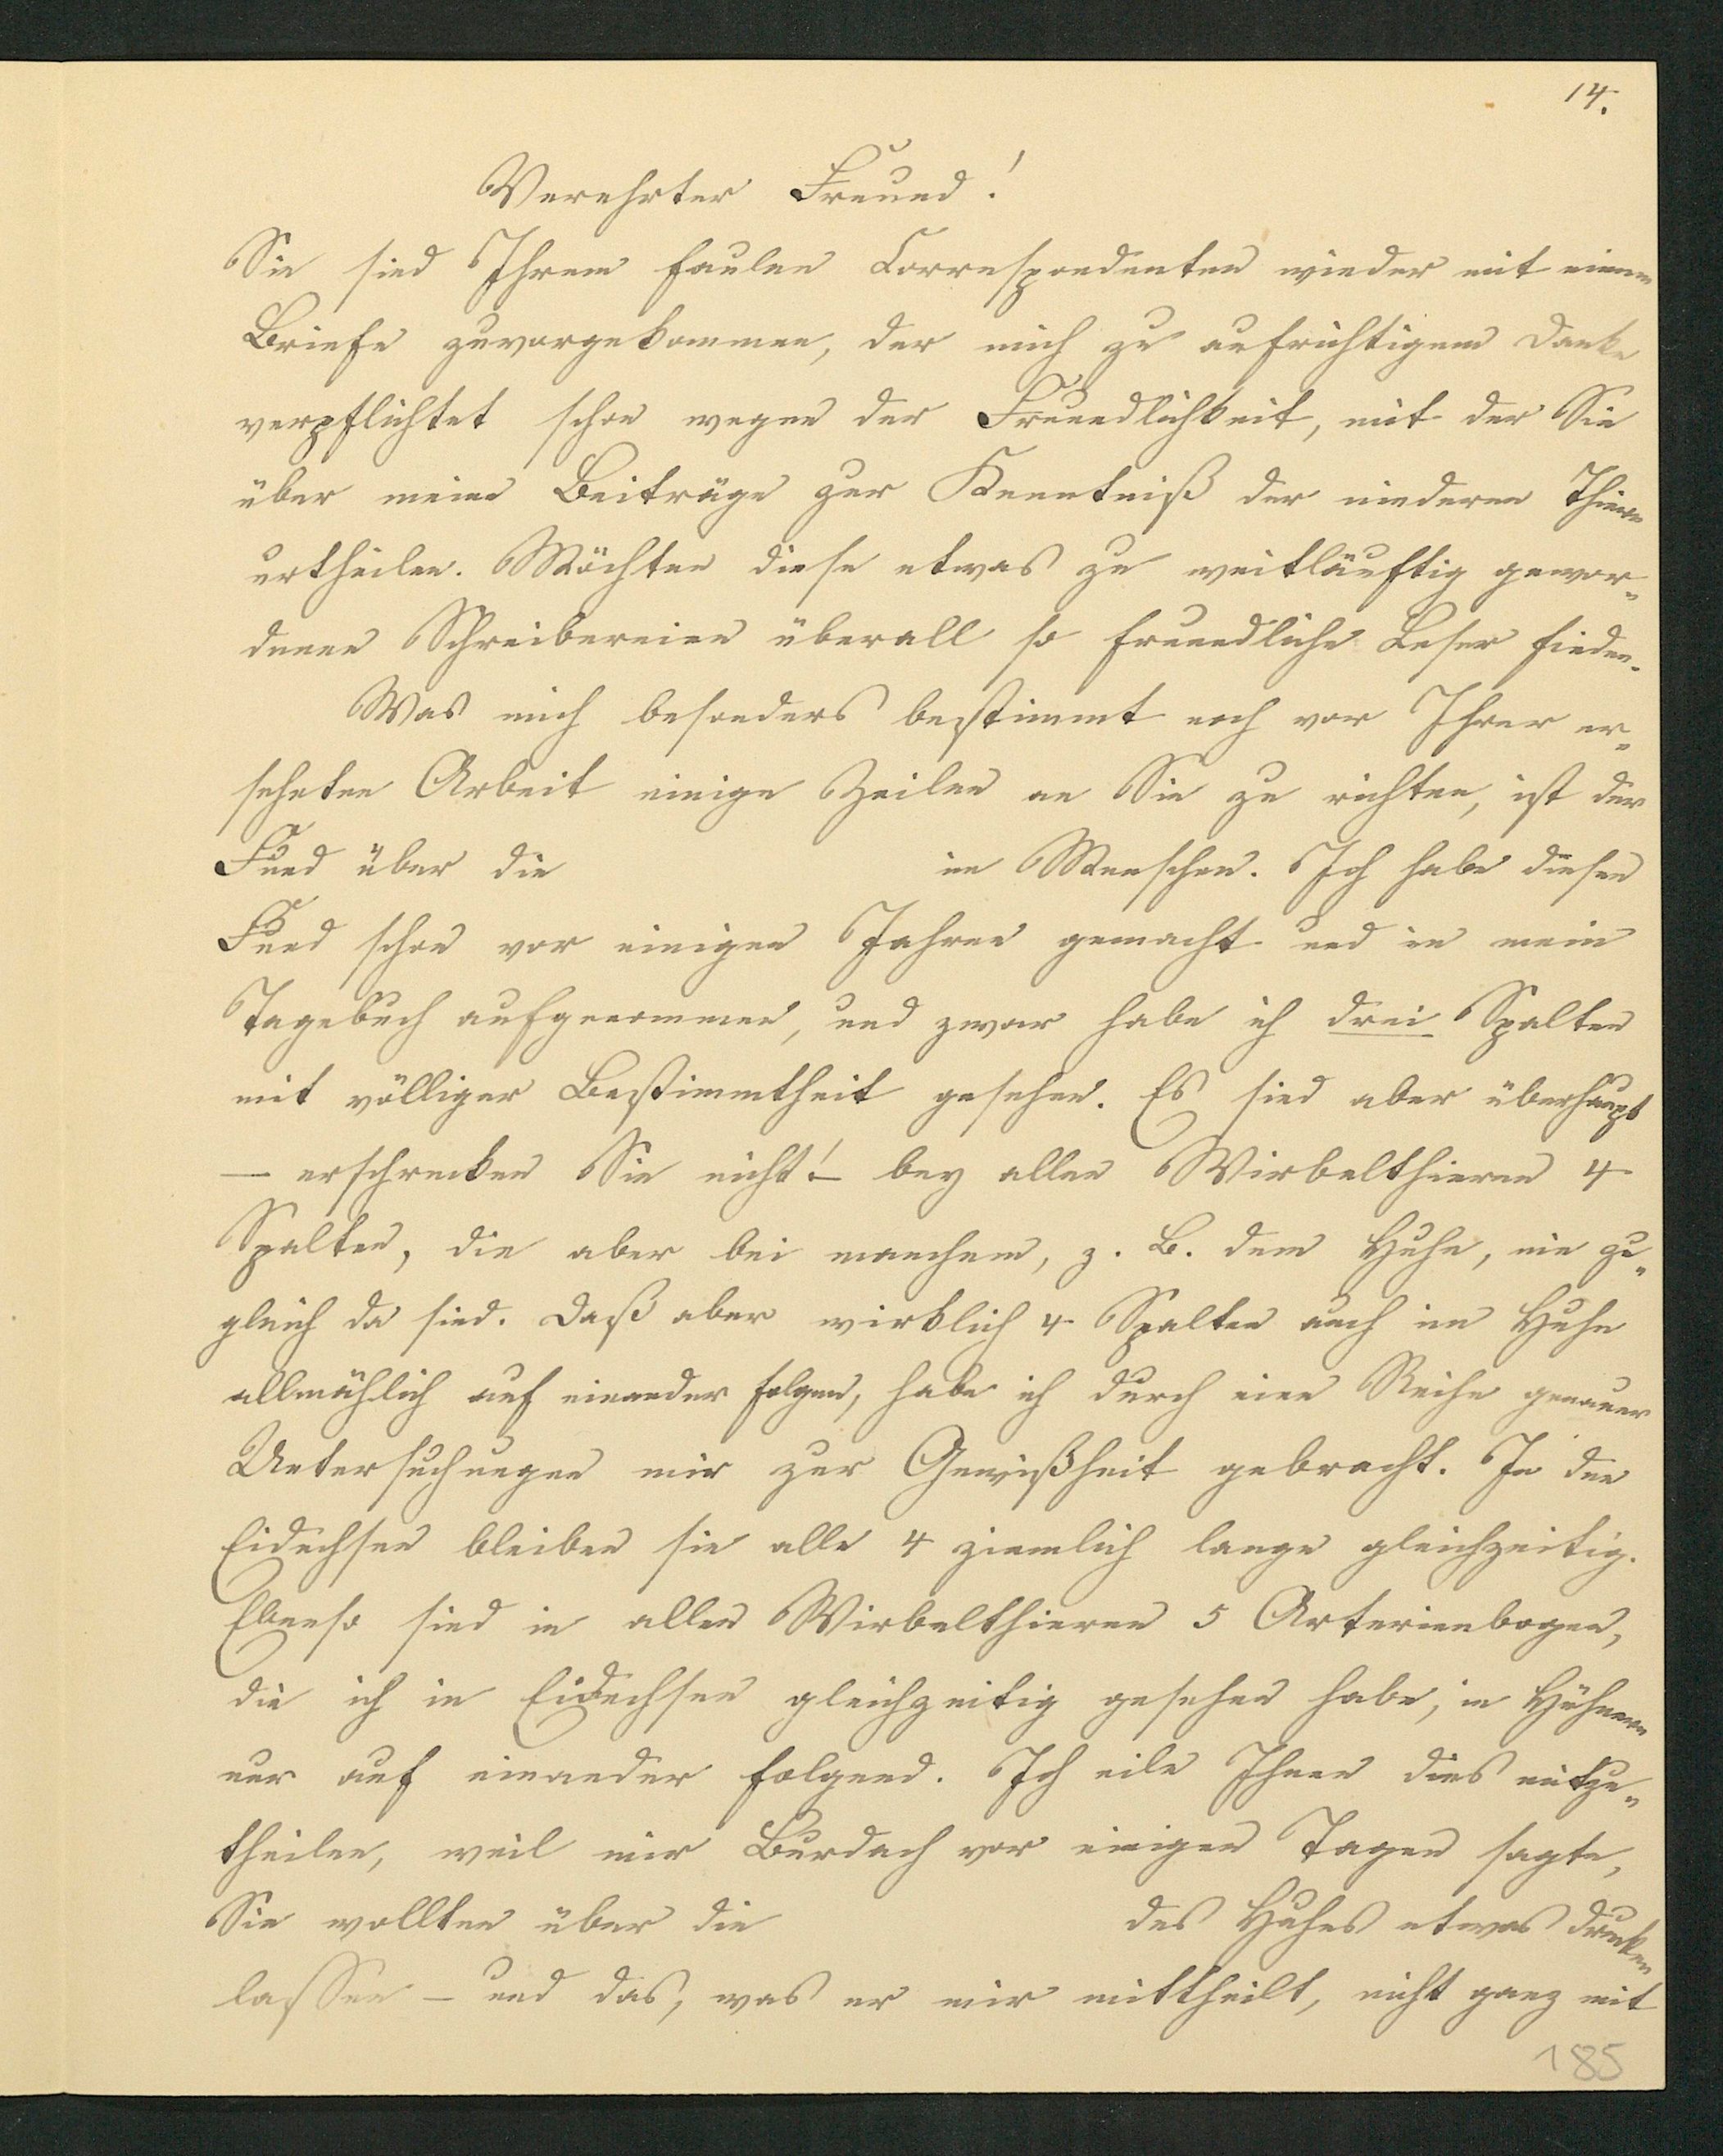 14.
Verehrter Freund!
Sie sind Ihrem faulen Correspondenten wieder mit einem
Briefe zuvorgekommen, der mich zu aufrichtigem Danke
verpflichtet schon wegen der Freundlichkeit, mit der Sie
über meine Beiträge zur Kenntniß der niederen Thiere
urtheilen. Möchten diese etwas zu weitläuftig gewor-
denen Schreibereien überall so freundliche Leser finden.
Was mich besonders bestimmt noch vor Ihrer er-
sehnten Arbeit einige Zeilen an Sie zu richten, ist der
Fund über die im Menschen. Ich habe diesen
Fund schon vor einigen Jahren gemacht und in mein
Tagebuch aufgenommen, und zwar habe ich drei Spalten
mit völliger Bestimmtheit gesehen. Es sind aber überhaupt
— erschrecken Sie nicht! — bey allen Wirbelthieren 4
Spalten, die aber bei manchem, z. B. dem Huhn, nie zu-
gleich da sind. Daß aber wirklich 4 Spalten auch im Huhn
allmählich auf einander folgen, habe ich durch eine Reihe genauer
Untersuchungen mir zur Gewißheit gebracht. In den
Eidechsen bleiben sie alle 4 ziemlich lange gleichzeitig.
Ebenso sind in allen Wirbelthieren 5 Arterienbogen,
die ich in Eidechsen gleichzeitig gesehen habe, in Hühnern
nur auf einander folgend. Ich eile Ihnen dies mitzu-
theilen, weil mir Burdach vor einigen Tagen sagte,
Sie wollten über die des Huhns etwas drucken
lassen — und das, was er mir mittheilt, nicht ganz mit
185